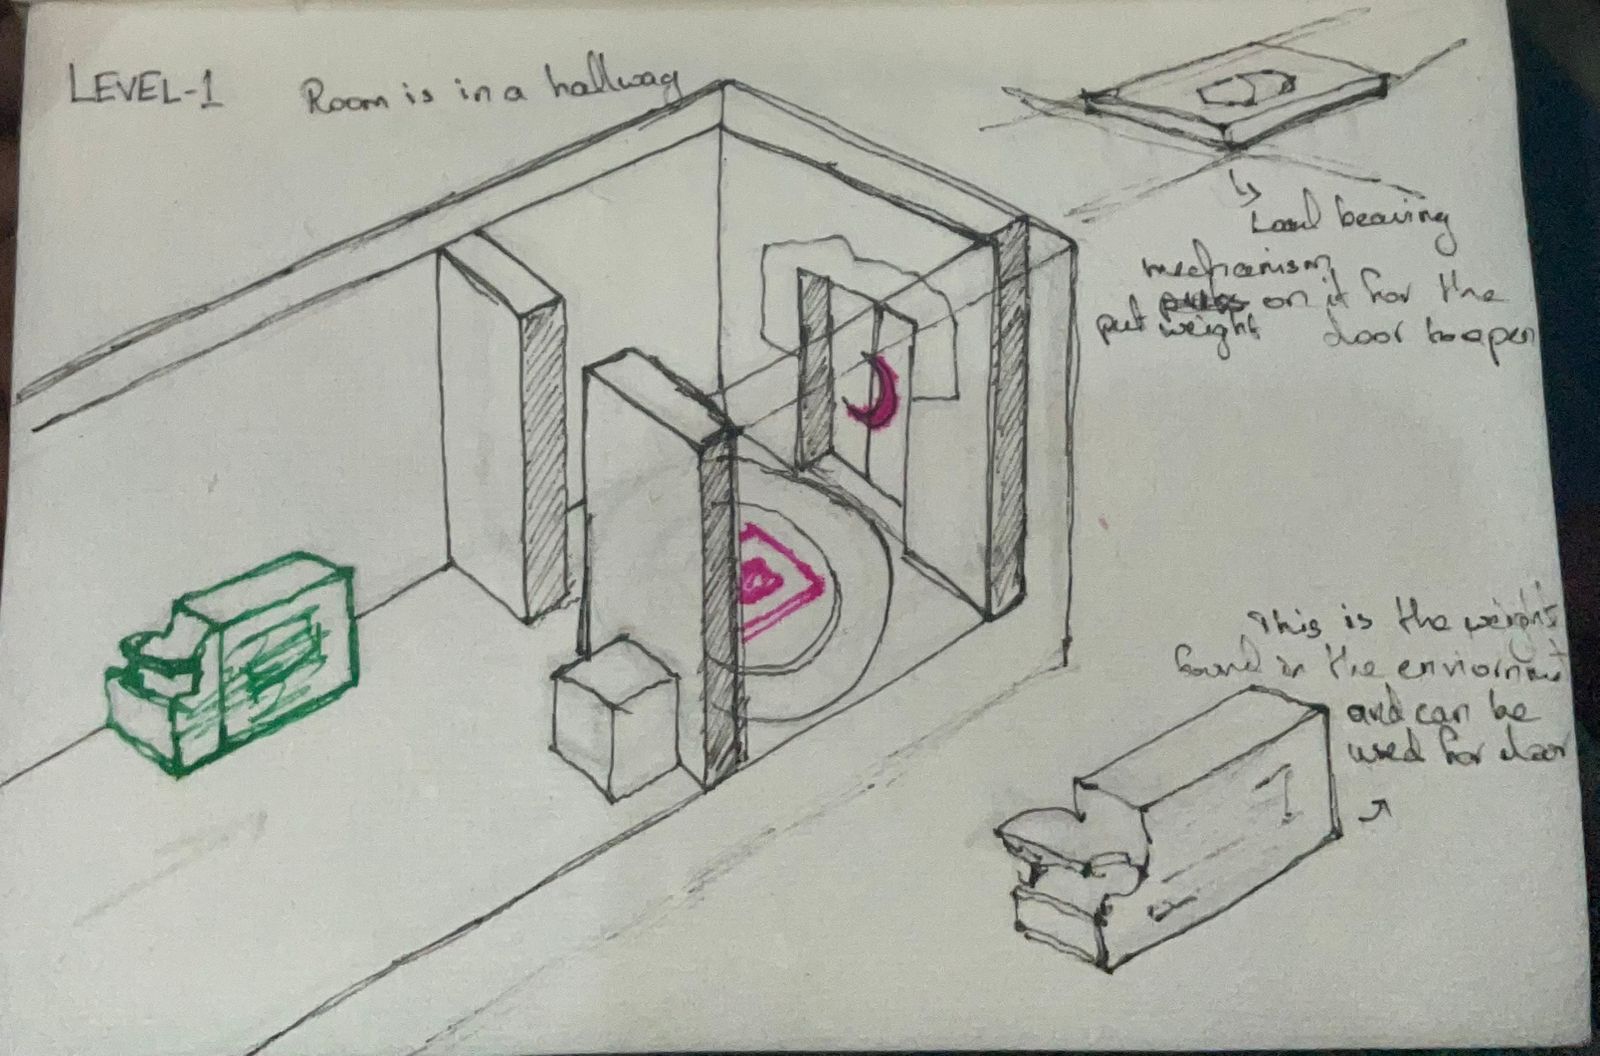 LEVEL-1
Room is in a hallway
Load bearing
mechanism
put weight on it for the
door to open
This is the weight
found in the enviorment
and can be
used for door